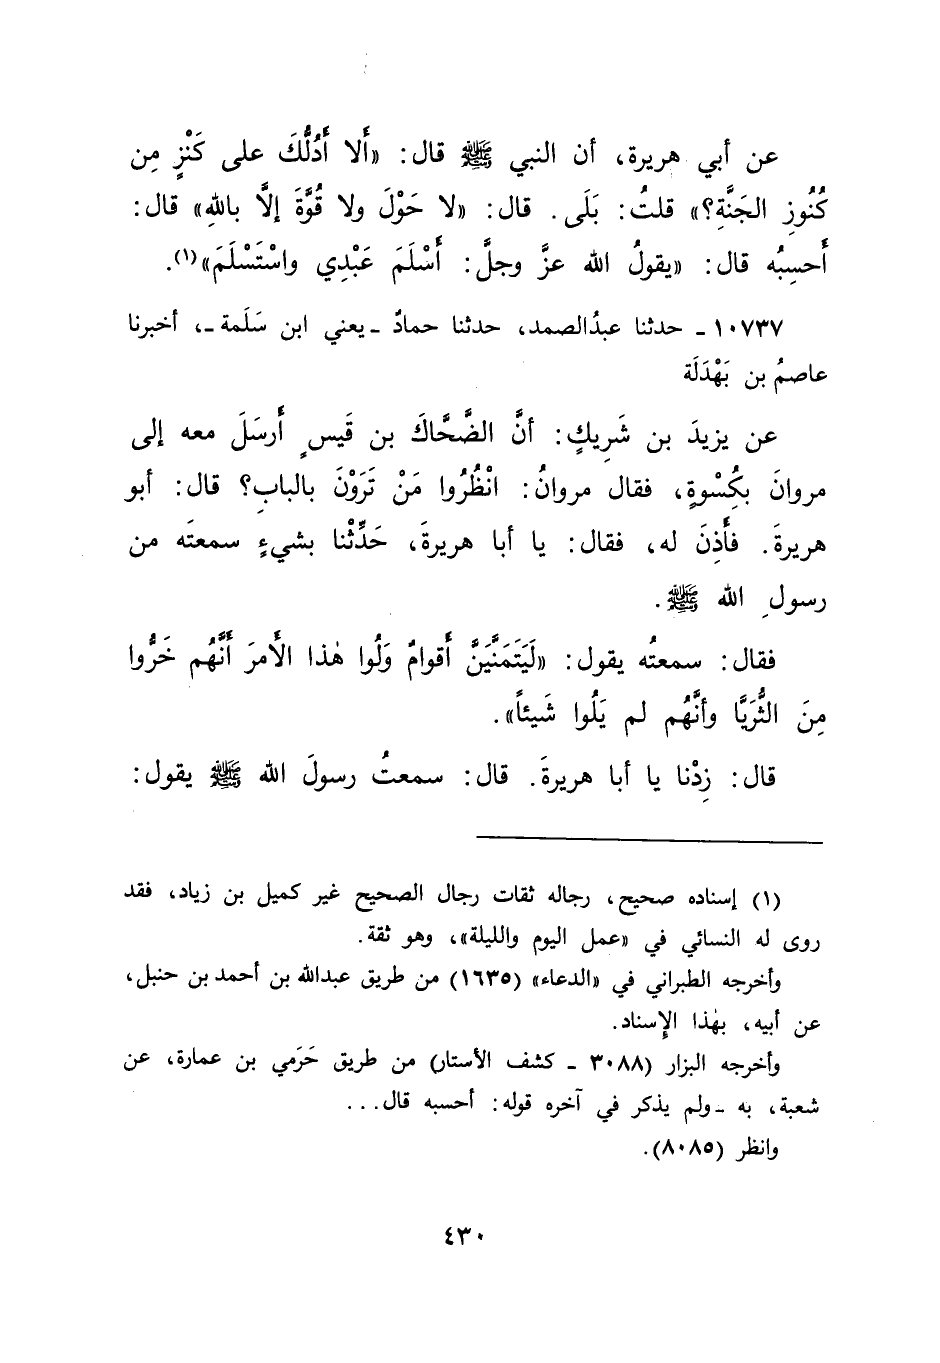 عن أبي هريرة، أن النبي ﷺ قال: «أَلا أَدُلُّكَ على كَنْزٍ مِن
كُنُوزِ الجَنَّةِ؟» قلتُ: بَلَى. قال: «لا حَوْلَ ولا قُوَّةَ إلَّا باللهِ» قال:
أَحسِبُه قال: «يقولُ الله عزَّ وجلَّ: أَسْلَمَ عَبْدِي واسْتَسْلَمَ»(١).
١٠٧٣٧ - حدثنا عبدُالصمد، حدثنا حمادٌ -يعني ابن سَلَمة-، أخبرنا
عاصمُ بن بَهْدَلَة
عن يزيدَ بن شَرِيكٍ: أنَّ الضَّحَّاكَ بن قَيسٍ أَرسَلَ معه إلى
مروانَ بكُِسْوةٍ، فقال مروانُ: انْظُرُوا مَنْ تَرَوْنَ بالبابِ؟ قال: أبو
هريرةَ. فأَذِنَ له، فقال: يا أبا هريرةَ، حَدِّثْنا بشيءٍ سمعتَه من
رسولِ الله ﷺ.
فقال: سمعتُه يقول: «لَيَتَمَنَّيَنَّ أَقوامٌ وَلُوا هٰذا الأَمرَ أَنَّهُم خَرُّوا
مِنَ الثُّرَيَّا وأنَّهُم لم يَلُوا شَيئاً».
قال: زِدْنا يا أبا هريرةَ. قال: سمعتُ رسولَ الله ﷺ يقول:
(١) إسناده صحيح، رجاله ثقات رجال الصحيح غير كميل بن زياد، فقد
روى له النسائي في «عمل اليوم والليلة»، وهو ثقة.
وأخرجه الطبراني في «الدعاء» (١٦٣٥) من طريق عبدالله بن أحمد بن حنبل،
عن أبيه، بهٰذا الإِسناد.
وأخرجه البزار (٣٠٨٨ - كشف الأستار) من طريق حَرَمي بن عمارة، عن
شعبة، به -ولم يذكر في آخره قوله: أحسبه قال...
وانظر (٨٠٨٥).
٤٣٠